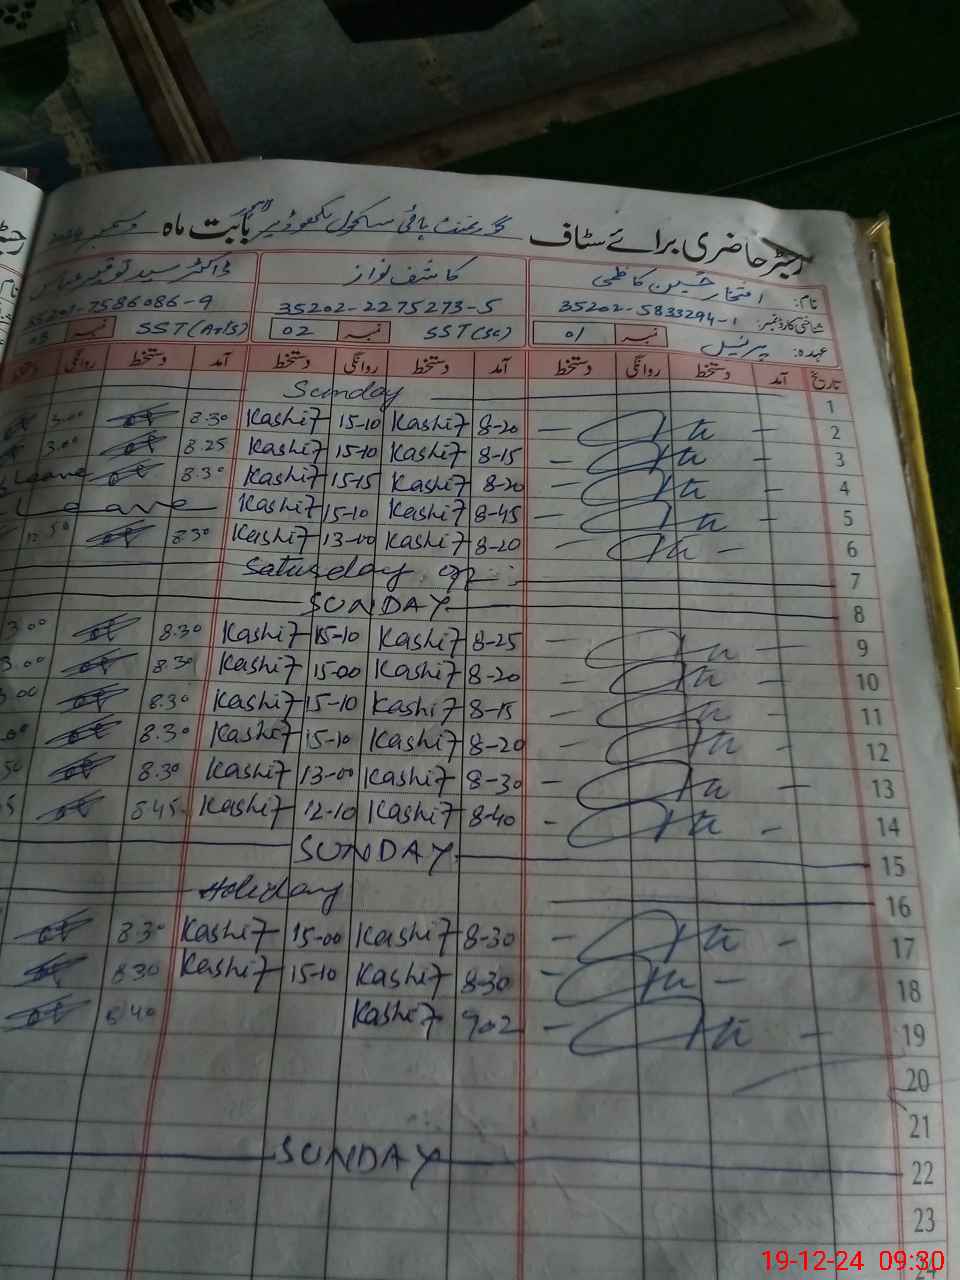 رجسٹر حاضری برائے سٹاف گورنمنٹ ہائی سکول لکھوڈیر لاہور بابت ماہ دسمبر
نام: افتخار حسین کاظمی کاشف نواز ڈاکٹر سید توقیر عباس
شناختی کارڈ نمبر: 35202-5833294-1 35202-2275273-5 35201-7586086-9
عہدہ: پرنسپل نمبر 01 SST(SC) نمبر 02 SST(Arts) نمبر 03
تاریخ آمد دستخط روانگی دستخط آمد دستخط روانگی دستخط آمد دستخط روانگی
1 Sunday
8.30 Kashif 15-10 Kashif 8-20 2
3.00 8.25 Kashif 15-10 Kashif 8-15 3
Leave 8.30 Kashif 15-15 Kashif 8-20 4
Leave Kashif 15-10 Kashif 8-45 5
12.50 8.30 Kashif 13-00 Kashif 8-20 6
Saturday off 7
SUNDAY 8
3.00 8.30 Kashif 15-10 Kashif 8-25 9
3.00 8.30 Kashif 15-00 Kashif 8-20 10
8.30 Kashif 15-10 Kashif 8-15 11
8.30 Kashif 15-10 Kashif 8-20 12
8.30 Kashif 13-00 Kashif 8-30 13
8.45 Kashif 12-10 Kashif 8-40 14
SUNDAY 15
Holiday 16
8.30 Kashif 15-00 Kashif 8-30 17
8.30 Kashif 15-10 Kashif 8-30 18
8.40 Kashif 902 19
20
21
SUNDAY 22
23
24
19-12-24 09:30